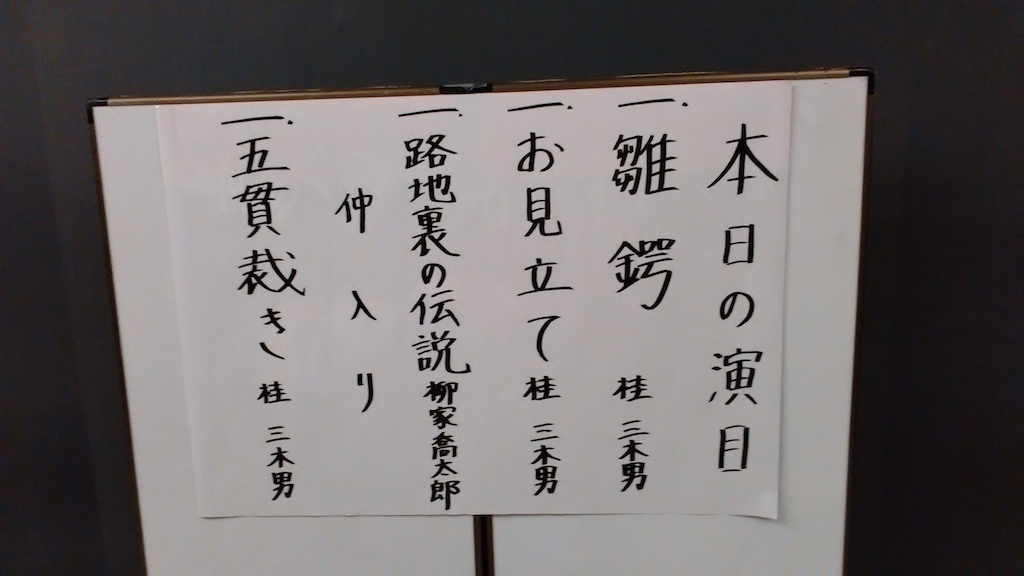 本日の演目
一.雛鍔 桂三木男
一.お見立て 桂三木男
一.路地裏の伝説 柳家喬太郎
仲入り
一.五貫裁き 桂三木男